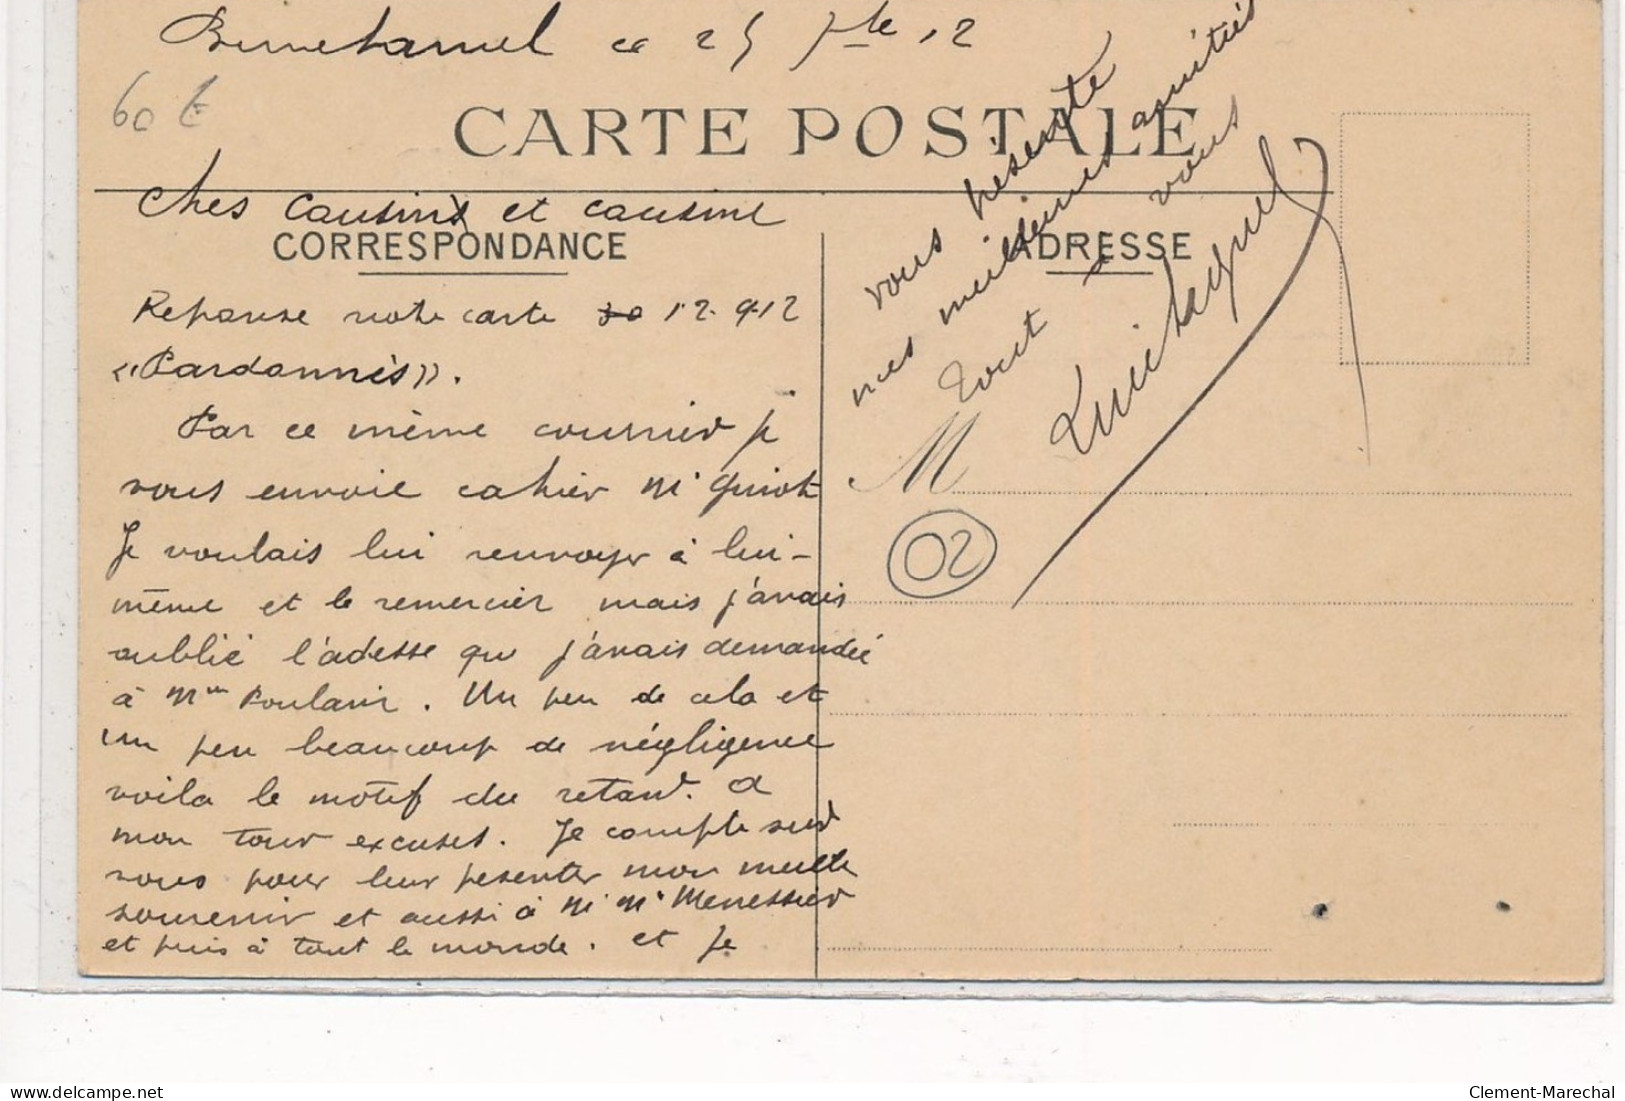 ce 25 12
60 €
CARTE POSTALE
Chers Causins et causine
CORRESPONDANCE
ADRESSE
Reponse notre carte 12.912
"Pardonnés".
Par ce même courrier je
vous envoie cahier Mr Guiot
Je voulais lui renvoyer à lui-
même et le remercier mais j'avais
oublié l'adesse que j'avais demandée
à Mme Poulain. Un peu de cela et
un peu beaucoup de négligence
voila le motif du retard. a
mon tour excuses. Je compte sur
vous pour leur pesenter mon meille
souvenir et aussi à M Me Menessier
et puis à tout le monde. et je
vous présente
mes meilleures amitiés
Tout à vous
M
02
Clement-Marechal